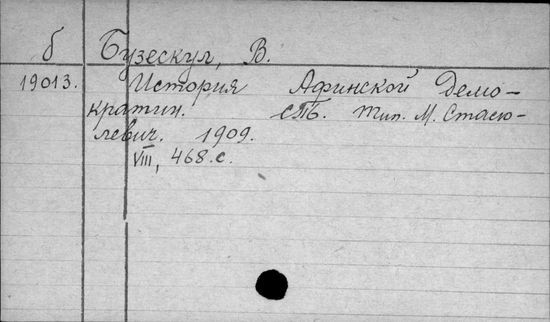 б Бузескул, В.
19013. История Афинской Демо-
кратии. СПБ. Тип. М. Стасю-
левич. 1909.
VIII, 468 с.